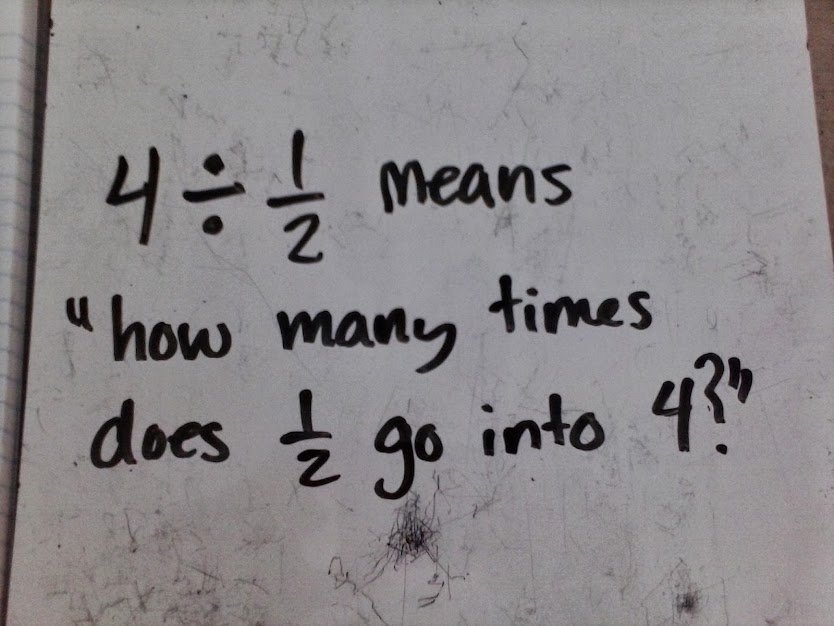 4 ÷ 1/2 means
"how many times
does 1/2 go into 4?"